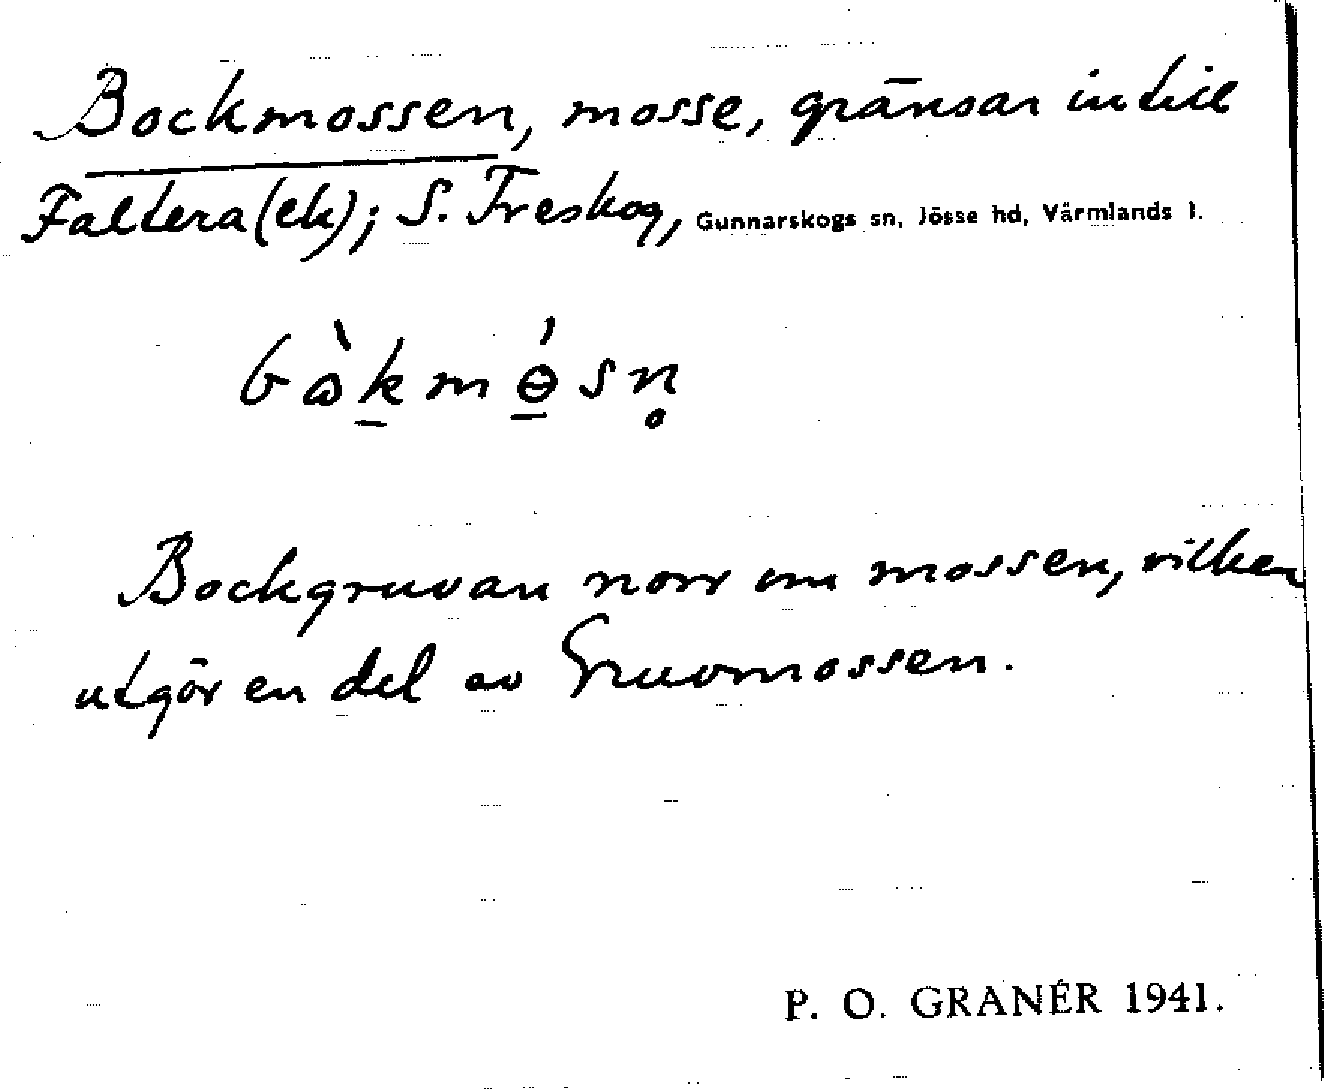 Bockmossen, mosse, gränsar intill
Faltera(ek); S. Treskog, Gunnarskogs sn, Jösse hd, Värmlands l.
bàkmǿsn̥
Bockgruvan norr om mossen, vilken
utgör en del av Gruvmossen.
P. O. GRANÉR 1941.